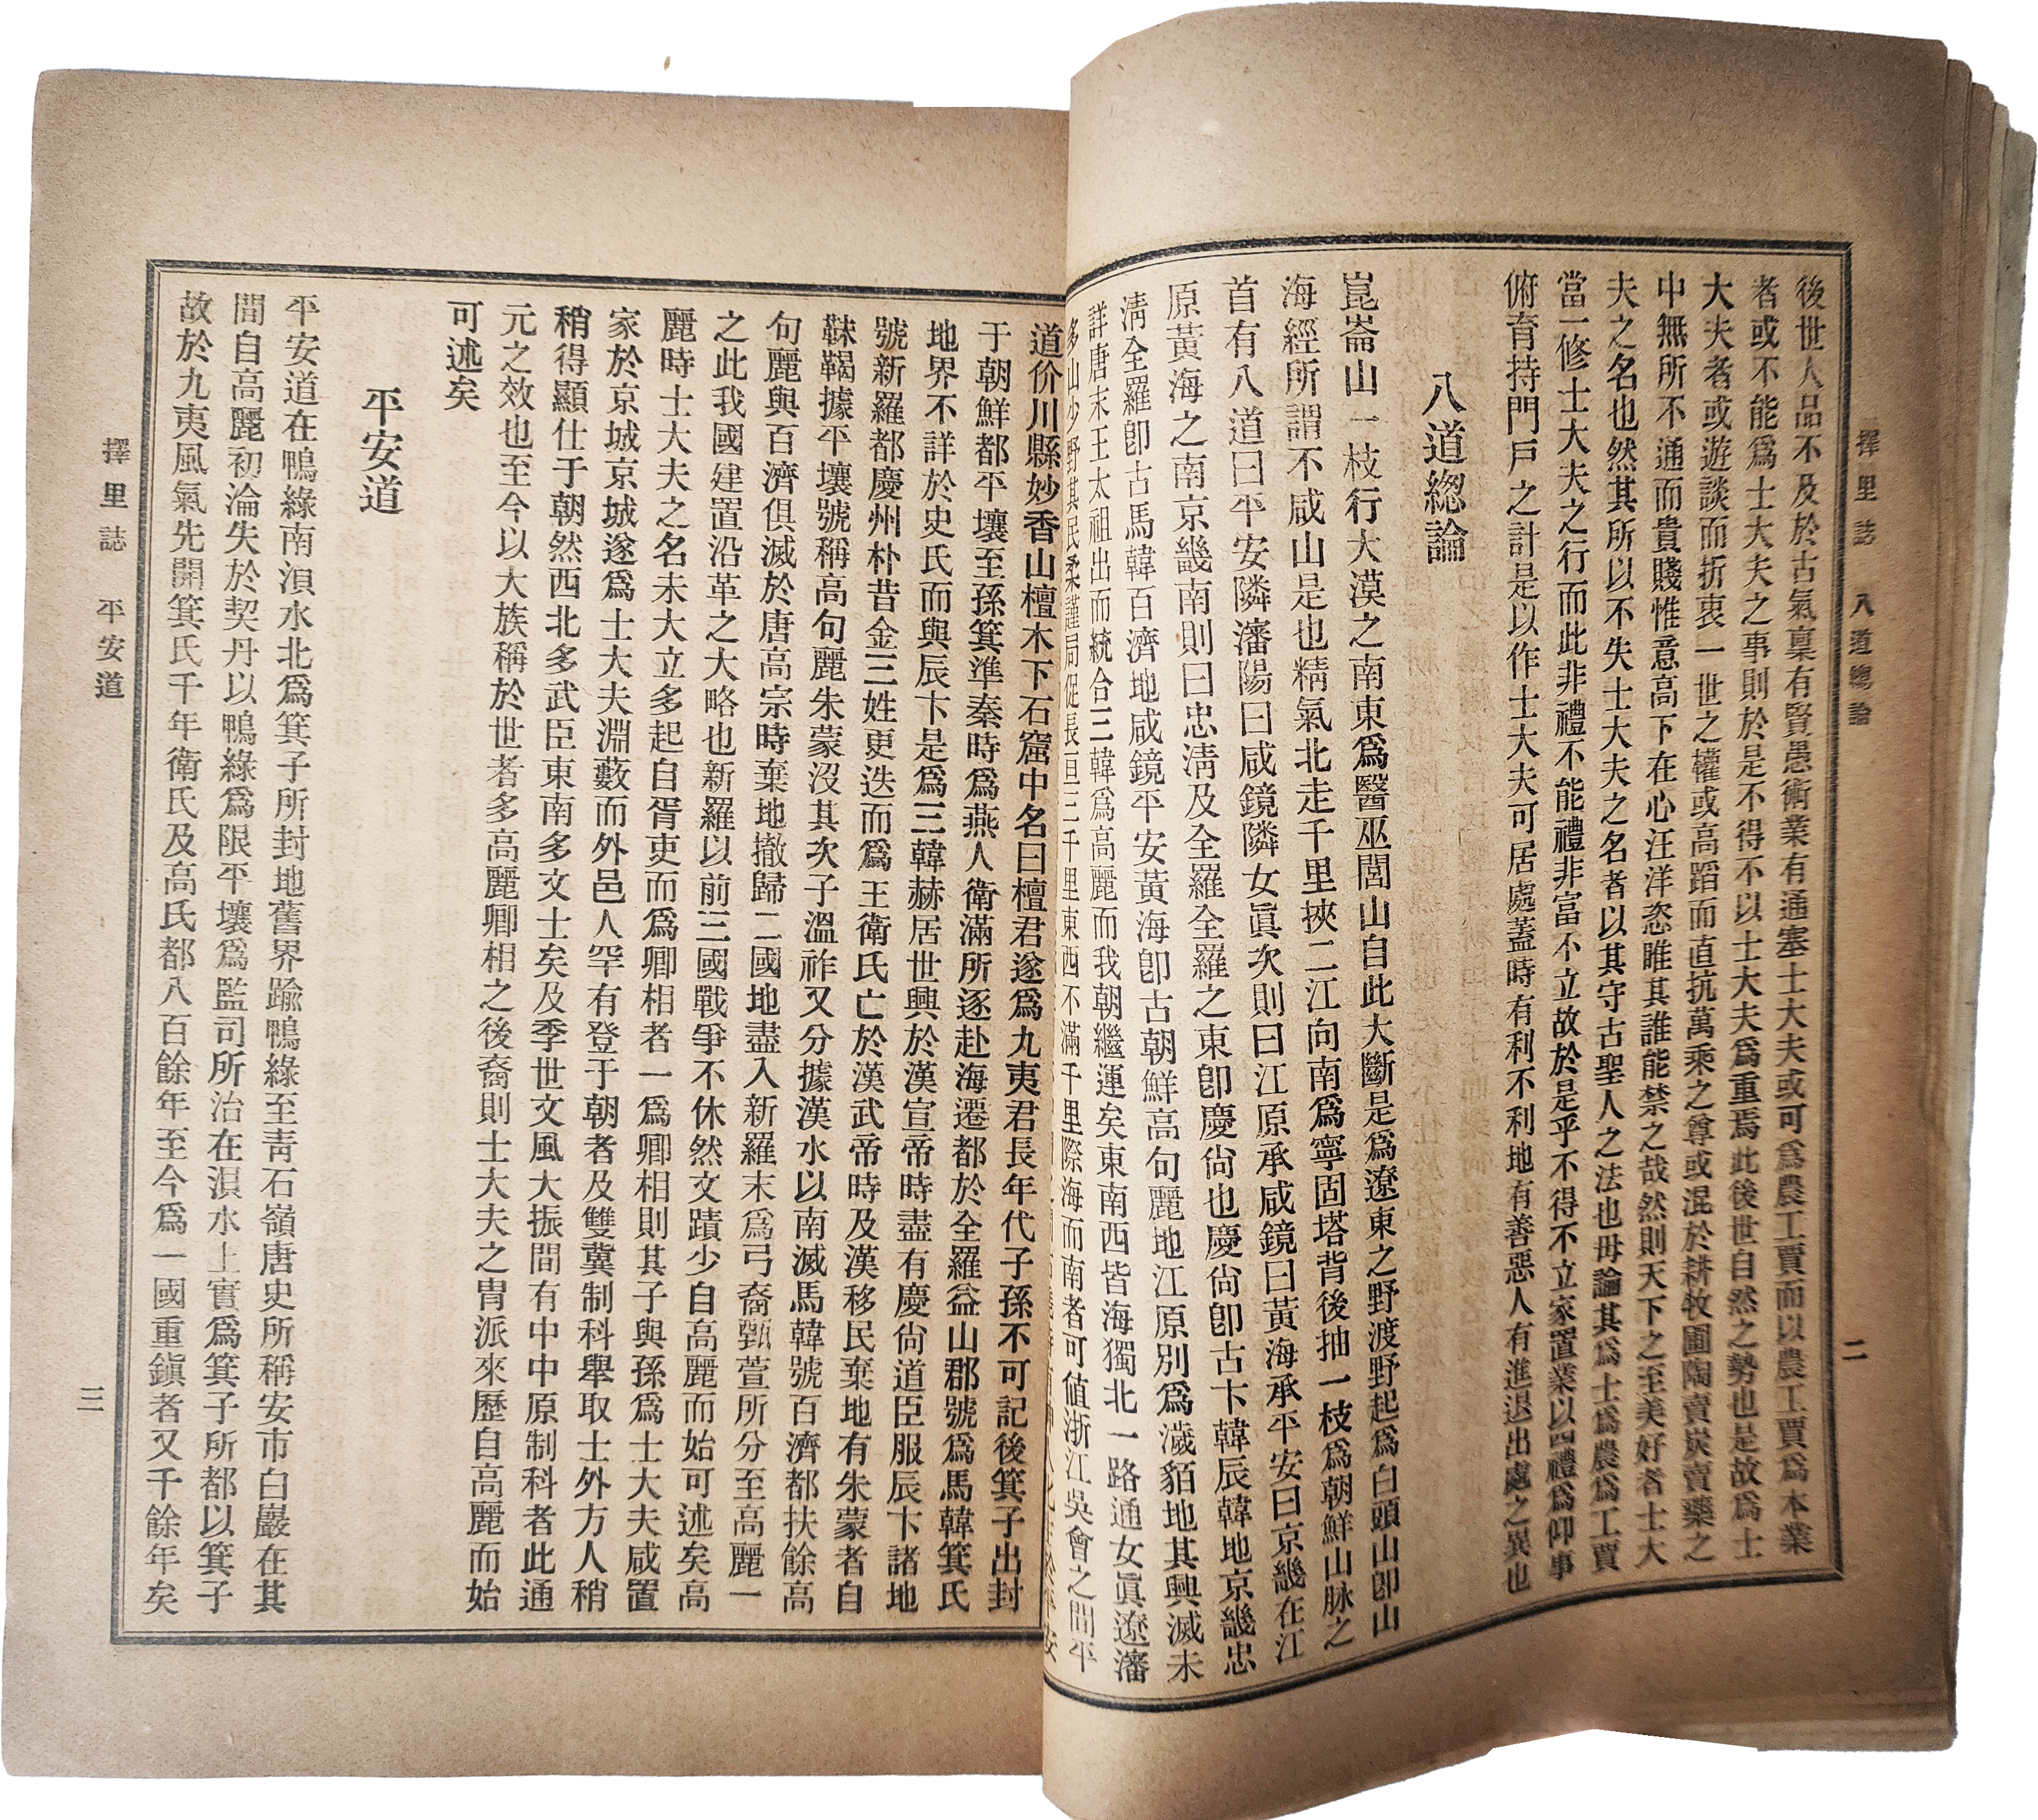 擇里誌　八道總論
二
後世人品不及於古氣稟有賢愚術業有通塞士大夫或可爲農工賈而以農工賈爲本業
者或不能爲士大夫之事則於是不得不以士大夫爲重焉此後世自然之勢也是故爲士
大夫者或遊談而折衷一世之權或高蹈而直抗萬乘之尊或混於耕牧圃陶賣炭賣藥之
中無所不通而貴賤惟意高下在心汪洋恣睢其誰能禁之哉然則天下之至美好者士大
夫之名也然其所以不失士大夫之名者以其守古聖人之法也毋論其爲士爲農爲工賈
當一修士大夫之行而此非禮不能禮非富不立故於是乎不得不立家置業以四禮爲仰事
俯育持門戶之計是以作士大夫可居處蓋時有利不利地有善惡人有進退出處之異也
八道總論
崑崙山一枝行大漠之南東爲醫巫閭山自此大斷是爲遼東之野渡野起爲白頭山卽山
海經所謂不咸山是也精氣北走千里挾二江向南爲寧固塔背後抽一枝爲朝鮮山脉之
首有八道曰平安隣瀋陽曰咸鏡隣女眞次則曰江原承咸鏡曰黃海承平安曰京畿在江
原黃海之南京畿南則曰忠淸及全羅全羅之東卽慶尙也慶尙卽古卞韓辰韓地京畿忠
淸全羅卽古馬韓百濟地咸鏡平安黃海卽古朝鮮高句麗地江原別爲濊貊地其興滅未
詳唐末王太祖出而統合三韓爲高麗而我朝繼運矣東南西皆海獨北一路通女眞遼瀋
多山少野其民柔謹局促長亘三千里東西不滿千里際海而南者可値浙江吳會之間平
道价川縣妙香山檀木下石窟中名曰檀君遂爲九夷君長年代子孫不可記後箕子出封
于朝鮮都平壤至孫箕準秦時爲燕人衛滿所逐赴海遷都於全羅益山郡號爲馬韓箕氏
地界不詳於史氏而與辰卞是爲三韓赫居世興於漢宣帝時盡有慶尙道臣服辰卞諸地
號新羅都慶州朴昔金三姓更迭而爲王衛氏亡於漢武帝時及漢移民棄地有朱蒙者自
靺鞨據平壤號稱高句麗朱蒙沒其次子溫祚又分據漢水以南滅馬韓號百濟都扶餘高
句麗與百濟俱滅於唐高宗時棄地撤歸二國地盡入新羅末爲弓裔甄萱所分至高麗一
之此我國建置沿革之大略也新羅以前三國戰爭不休然文蹟少自高麗而始可述矣高
麗時士大夫之名未大立多起自胥吏而爲卿相者一爲卿相則其子與孫爲士大夫咸置
家於京城京城遂爲士大夫淵藪而外邑人罕有登于朝者及雙冀制科舉取士外方人稍
稍得顯仕于朝然西北多武臣東南多文士矣及季世文風大振間有中中原制科者此通
元之效也至今以大族稱於世者多高麗卿相之後裔則士大夫之冑派來歷自高麗而始
可述矣
平安道
平安道在鴨綠南浿水北爲箕子所封地舊界踰鴨綠至靑石嶺唐史所稱安市白巖在其
間自高麗初淪失於契丹以鴨綠爲限平壤爲監司所治在浿水上實爲箕子所都以箕子
故於九夷風氣先開箕氏千年衛氏及高氏都八百餘年至今爲一國重鎭者又千餘年矣
擇里誌　平安道
三